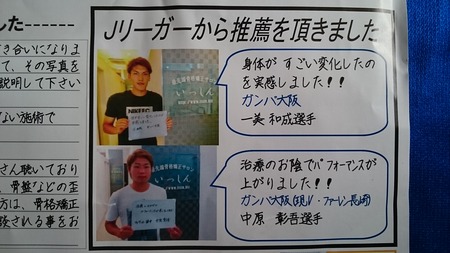 した------
Jリーガーから推薦を頂きました
き合いになりま
て、その写真を
説明して下さい
ない施術で
さん聴いており
、骨盤などの歪
方は、骨格矯正
談される事をお
身体が すごい変化したの
を実感しました！！
ガンバ大阪
一美 和成選手
いっしん
治療のお陰でパフォーマンスが
上がりました！！
ガンバ大阪(現V・ファーレン長崎)
中原 彰吾選手